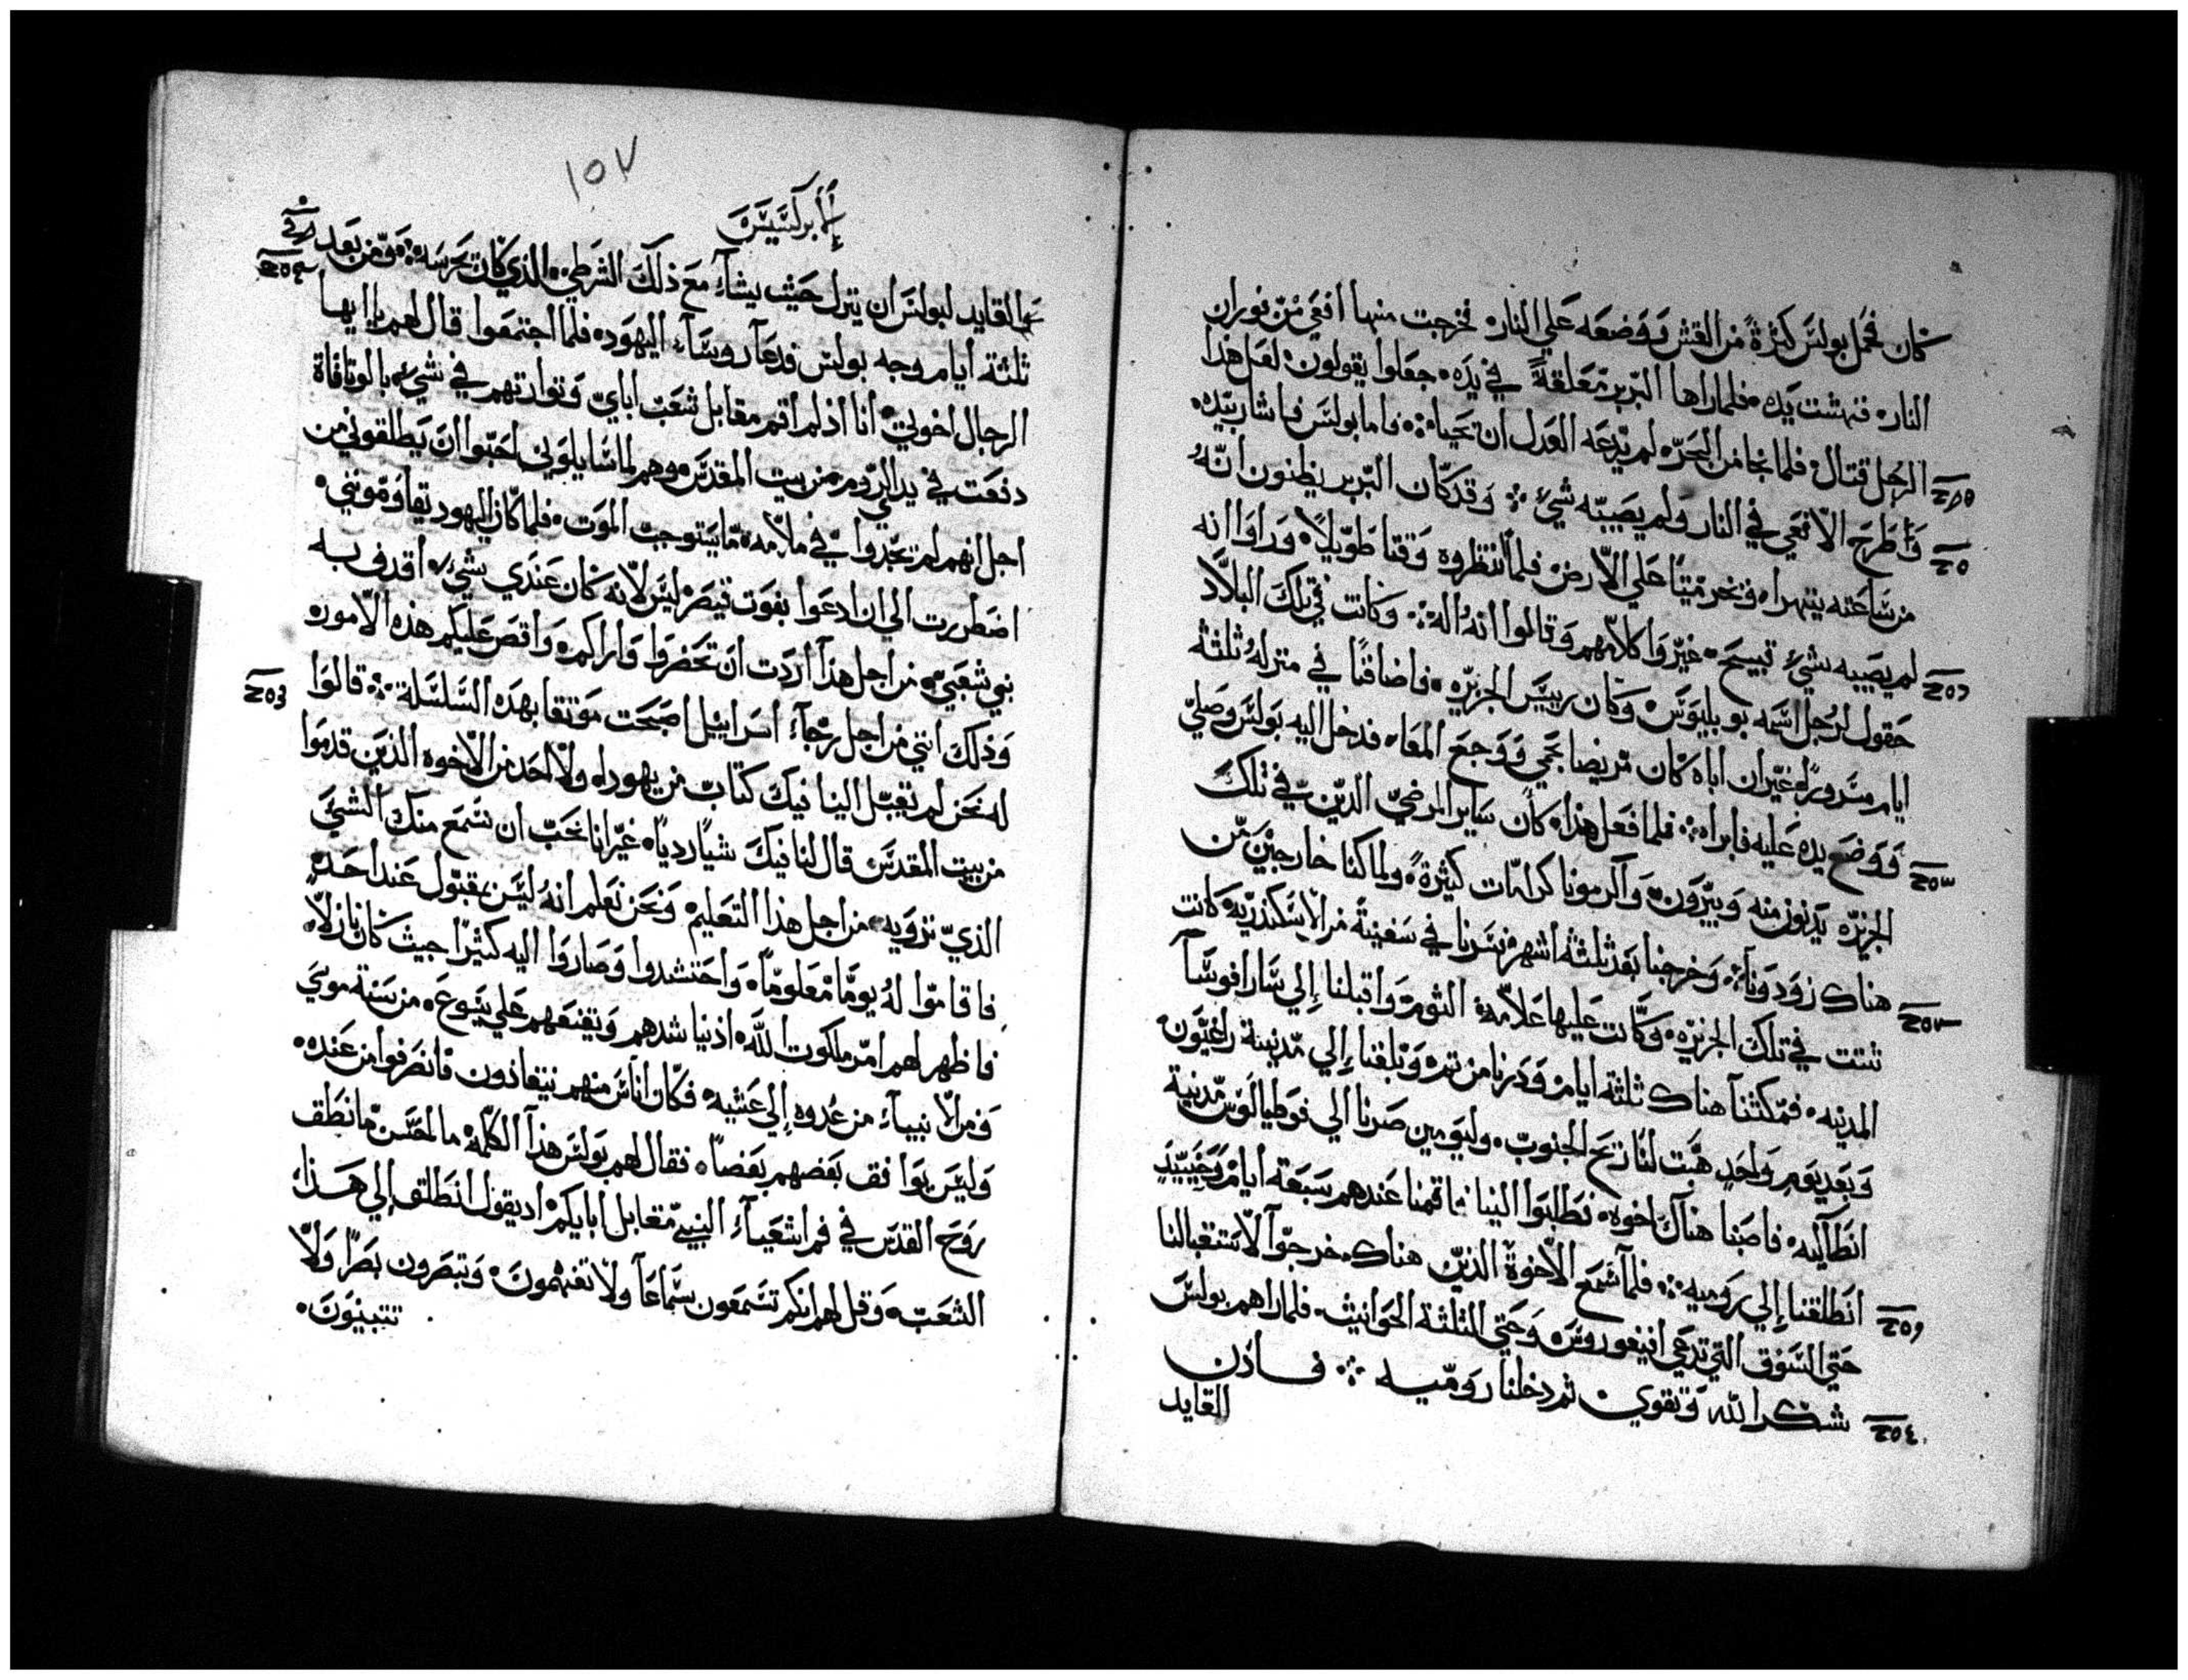 كان فحمل بولس كثرةً من القش ووضعه علي النار فخرجت منها افعي من نوران
النار فنهشت يده فلما راها البربر معلقةً في يده جعلوا يقولون لعل هذا
الرجل قتال فلما نجا من البحر لم يدعه العدل ان يحيا فاما بولس فاشار بيده
واطرح الافعي في النار ولم يصيبه شيء وقد كان البربر يظنون انه
من ساعته يتهرا ويخر ميتًا علي الارض فلما انتظروه وقتا طويلاً وراوا انه
لم يصيبه شيء قبيح غيروا كلامهم وقالوا انه اله وكانت في تلك البلاد
حقول لرجل اسمه بوبليوس وكان رييس الجزيره فاضافنا في منزله ثلثة
ايام مسرورًا غير ان اباه كان مريضا بحمي ووجع المعا فدخل اليه بولس وصلي
ووضع يده عليه فابراه فلما فعل هذا كان ساير المرضي الذين في تلك
الجزيره يدنون منه ويبرون واكرمونا كرامات كثيرةً ولما كنا خارجين من
هناك زودونا وخرجنا بعد ثلثة اشهر فسرنا في سفينة من الاسكندريه كانت
شتت في تلك الجزيره وكانت عليها علامة التوم واقبلنا إلي ساراقوسا
المدينه فمكثنا هناك ثلثة ايام ودرنا من ثم وبلغنا إلي مدينة راغيون
وبعد يوم واحد هبت لنا ريح الجنوب وليومين صرنا الي فوطيالوس مدينة
انطاليه فاصبنا هناك اخوه فطلبوا الينا فاقمنا عندهم سبعة ايام وحينيذ
انطلقنا إلي روميه فلما سمع الاخوة الذين هناك خرجوا لاستقبالنا
حتي السوق التي تدعي افيفوروس وحتي الثلثة الحوانيت فلما راهم بولس
شكر الله وتقوي ثم دخلنا روميه فاذن
القايد
١٥٧
الابركسيس
القايد لبولس ان ينزل حيث يشاء مع ذلك الشرطي الذي كان يحرسه ومن بعد
ثلثة ايام وجه بولس فدعا روساء اليهود فلما اجتمعوا قال لهم يا ايها
الرجال اخوتي انا اذ لم اقم مقابل شعب اباي وتوراتهم في شيء بالوثاقاة
دفعت في يد الروم من بيت المقدس وهم لما سايلوني احبوا ان يطلقوني من
اجل انهم لم يجدوا في ملامه ما يستوجب الموت فلما كان اليهود يقاومونني
اضطررت الي ان ادعوا بغوث قيصر ليس لانه كان عندي شيء اقدف به
بني شعبي من اجل هذا اردت ان تحضروا واراكم واقص عليكم هذه الامور
وذلك انني من اجل رجاء اسراييل اصبحت موثقا بهده السلسلة قالوا
له نحن لم تقبل الينا فيك كتاب من يهودا ولا احد من الاخوه الذين قدموا
من بيت المقدس قال لنا فيك شيًا رديا غير انا نحب ان نسمع منك الشيَ
الذي تروَيه من اجل هذا التعليم ونحن نعلم انه ليس بمقبول عند احد
فاقاموا له يومًا معلومًا واحتشدوا وصاروا اليه كثيرًا حيث كان نازلاً
فاظهر لهم امر ملكوت الله اذ يناشدهم ويقنعهم علي يسوع من سنة موسي
ومن الانبياء من غدوه إلي عشيه فكان اناس منهم ينقادون فانصرفوا من عنده
وليس يوافق بعضهم بعضا فقال لهم بولس هذا الكلمة ما احسن ما نطق
روح القدس في فم اشعياء النبي مقابل ابايكم اد يقول انطلق إلي هذا
الشعب وقل لهم انكم تسمعون سماعًا ولا تفهمون وتبصرون بصرًا ولا
تتبينون